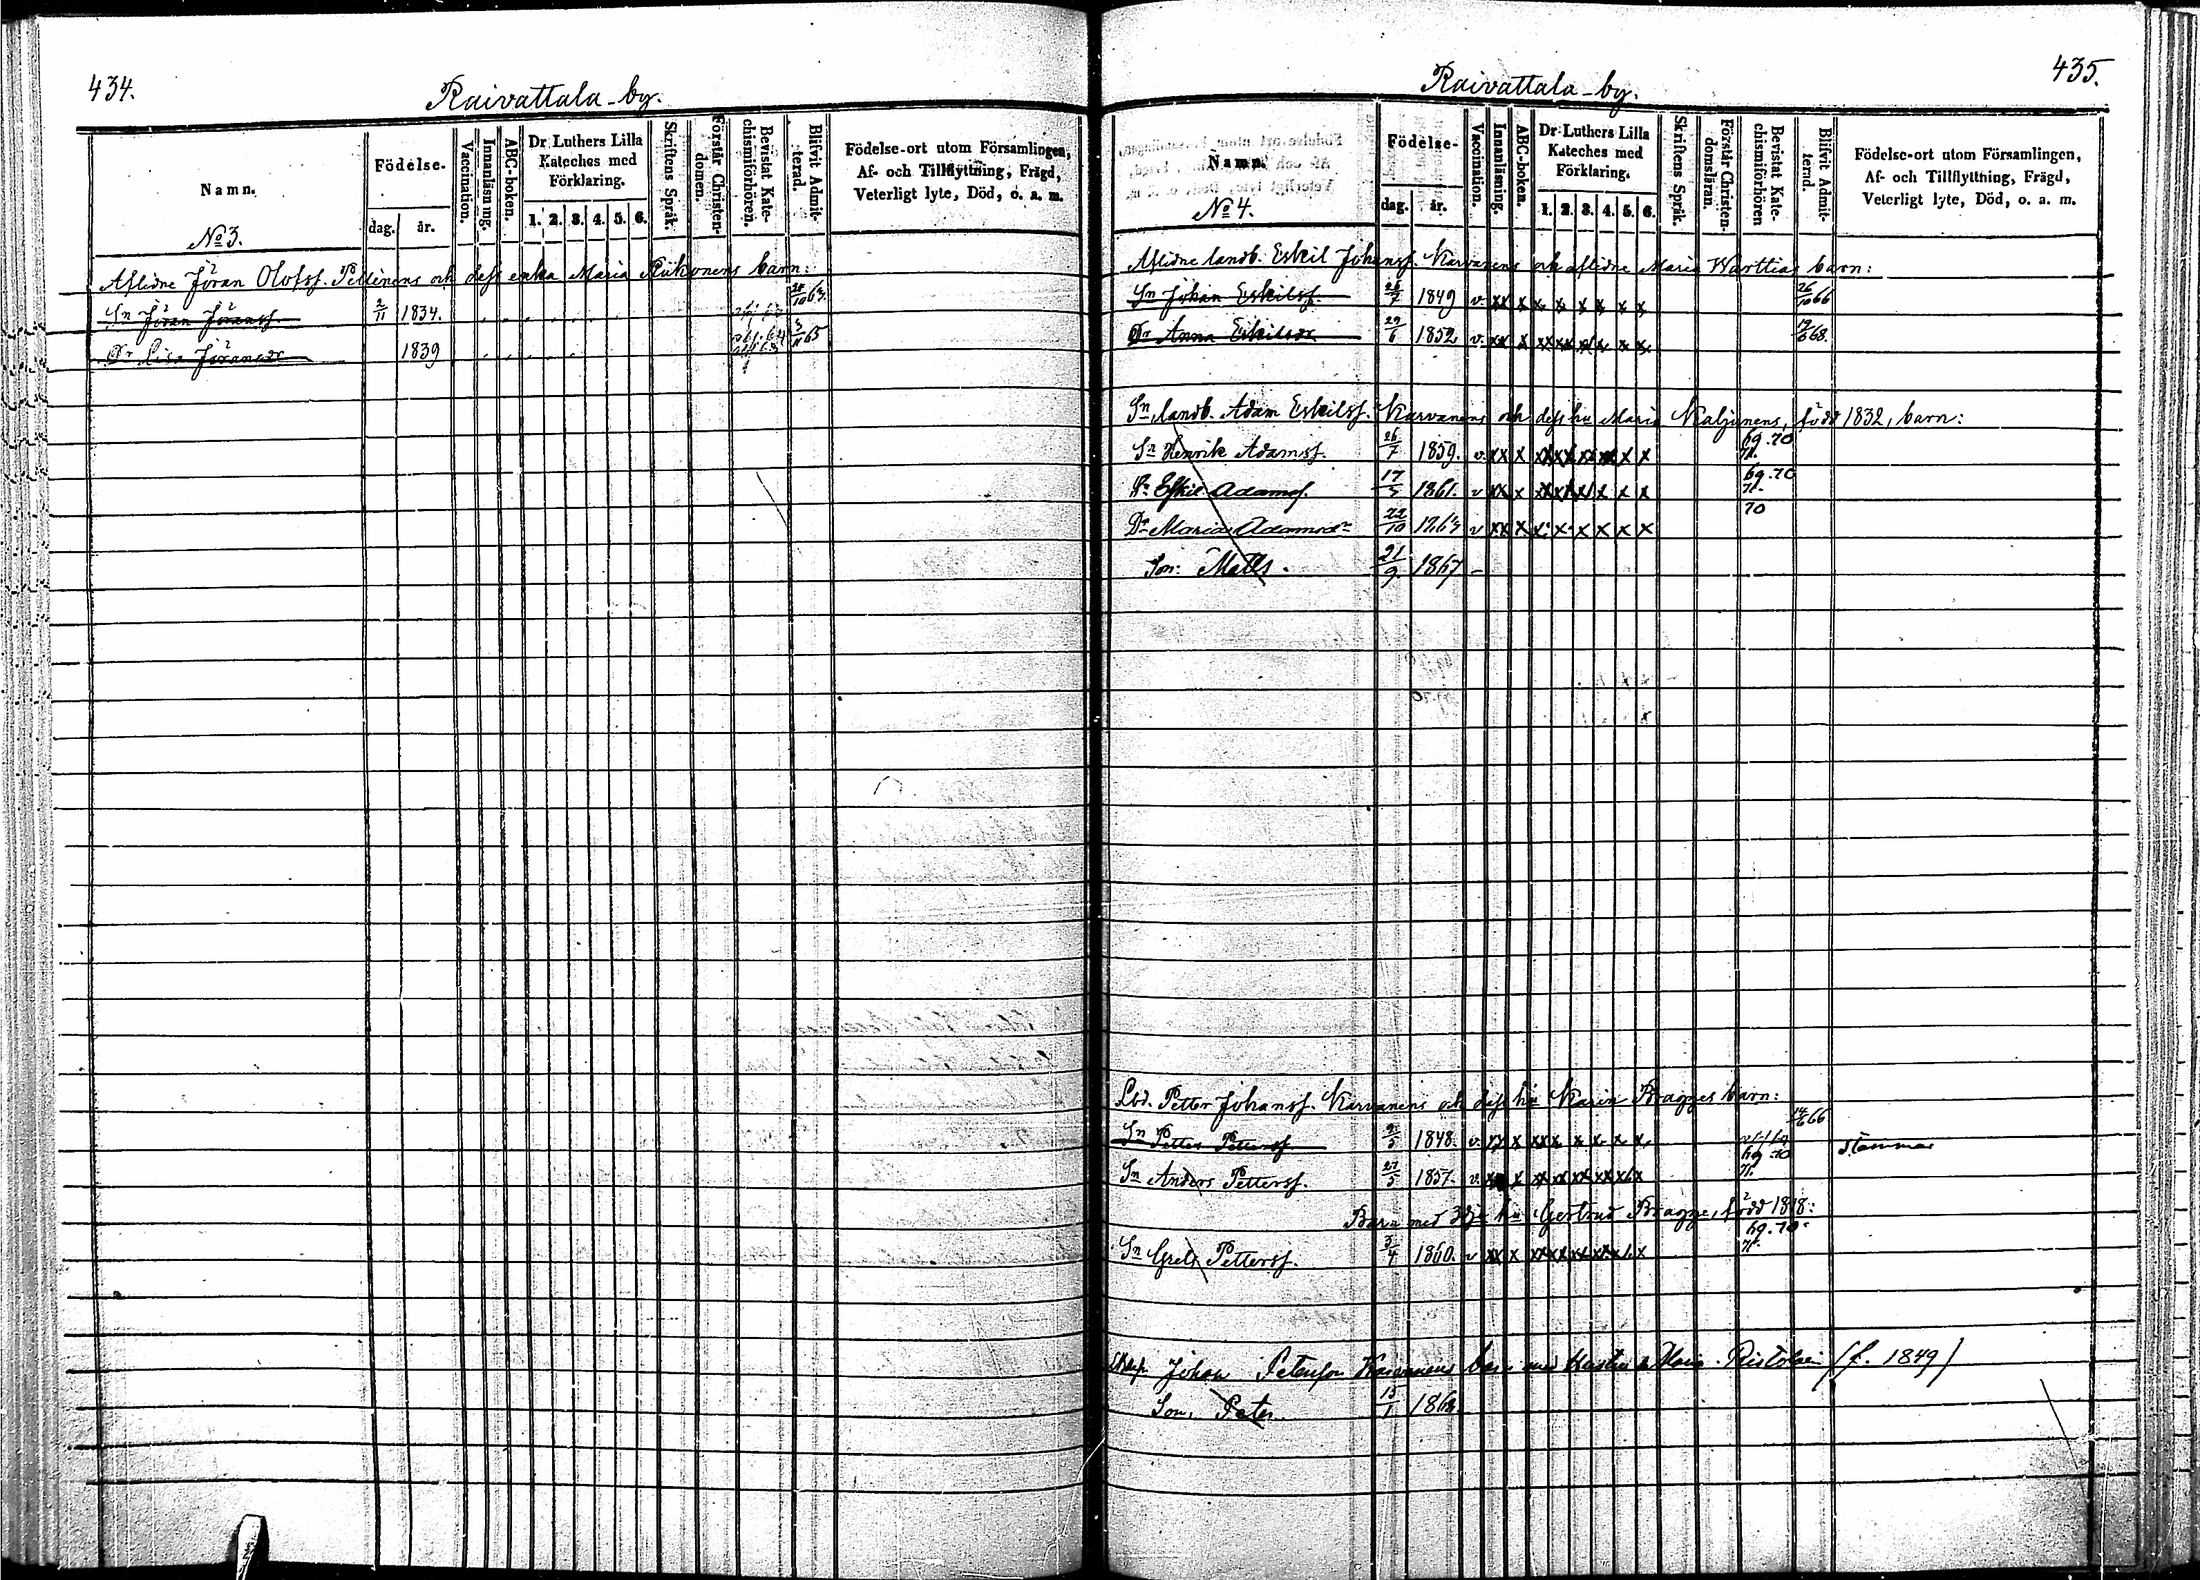 434.
Raivattala-by.
Namn.
No 3.
Födelse-
dag. år.
Vaccination.
Innanläsning.
ABC-boken.
Dr Luthers Lilla
Kateches med
Förklaring.
1. 2. 3. 4. 5. 6.
Skriftens Språk.
Förstår Christen-
domen.
Bevistat Kate-
chismiförhören.
Blifvit Admit-
terad.
Födelse-ort utom Församlingen,
Af- och Tillflyttning, Frägd,
Veterligt lyte, Död, o. a. m.
Aflidne Jöran Olofss. Pellinens och dess enka Maria Kukonens barn:
Sn Jöran Jöranss. 2/11 1834.
Dr Lisa Jöransdr 1839 65
435.
Raivattala-by.
Namn.
No 4.
Födelse-
dag. år.
Vaccination.
Innanläsning.
ABC-boken.
Dr Luthers Lilla
Kateches med
Förklaring.
1. 2. 3. 4. 5. 6.
Skriftens Språk.
Förstår Christen-
domsläran.
Bevistat Kate-
chismiförhören
Blifvit Admit-
terad.
Födelse-ort utom Församlingen,
Af- och Tillflyttning, Frägd,
Veterligt lyte, Död, o. a. m.
Aflidne landb. Eskil Johanss. Karvanens och aflidne Maria Warttias barn:
Sn Johan Eskilss. 26/7 1849 v. xx x x x x x x x 26/10 66
Dr Anna Eskilsdr 29/6 1852 v. xx x xx xx xx x x x 19/6 68.
Sn landb. Adam Eskilss. Karvanens och dess hu Maria Kaljunens, född 1832, barn:
Sn Henrik Adamss. 26/7 1859. v. xx x xx xx xx xx x x 69.70 71.
Sn Eskil Adamss. 17/5 1861. v xx x xx xx xx x x x 69.70 71.
Dr Maria Adamsdr 22/10 1863 v xx x x x x x x x 70
Son: Matts. 21/9 1867 -
Lbd. Petter Johanss. Karvanens och dess hu Karin Bragges barn:
Sn Petter Petterss. 2/5 1848. v. xx x xx x x x x x 14/6 66 stammar
Sn Anders Petterss. 27/5 1857. v. xx x xx xx xx xx x x 69.70 71.
Barn med 3dje hu Gertrud Bragge, född 1818:
Sn Grels Petterss. 3/4 1860. v xx x xx xx xx xx x x 69.70. 71.
Johan Petersson Karvanens barn med hustru Maria Ristolain (f. 1849)
Son, Peter. 13/1 1868.